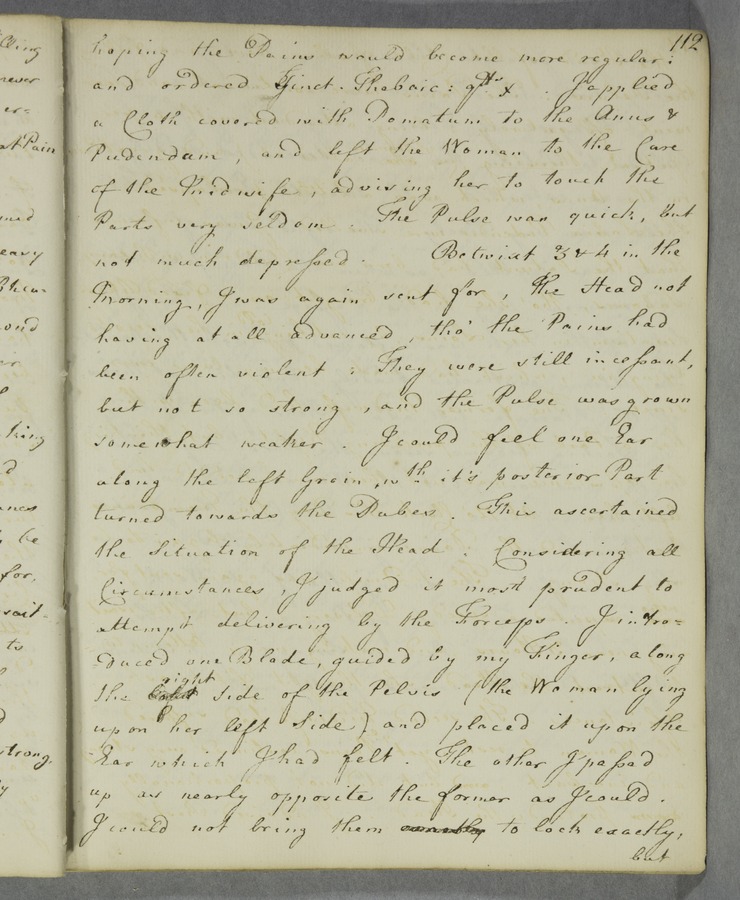 112
hoping the Pains would become more regular:
and ordered Tinct. Thebaic: gtts x. I applied
a Cloth covered with Pomatum to the Anus &
Pudendam, and left the Woman to the Care
of the Midwife, advising her to touch the
Parts very seldom. The Pulse was quick, but
not much depressed. Betwixt 3 & 4 in the
Morning, I was again sent for, the Head not
having at all advanced, tho' the Pains had
been often violent: They were still incessant,
but not so strong, and the Pulse was grown
somewhat weaker. I could feel one Ear
along the left Groin, wth it's posterior Part
turned towards the Pubes. This ascertained
the Situation of the Head. Considering all
Circumstances, I judged it most prudent to
attempt delivering by the Forceps. I intro=
=duced one Blade, guided by my Finger, along
the right side of the Pelvis (the Woman lying
upon her left Side) and placed it upon the
Ear which I had felt. The other I passed
up as nearly opposite the former as I could.
I could not bring them to lock exactly,
but